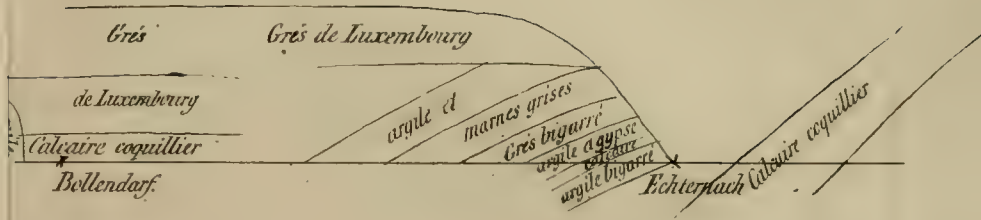 Grés
Grés de Luxembourg
de Luxembourg
Calcaire coquillier
argile et
marnes grises
Grés bigarré
argile a gypse
calcaire
argile bigarré
Bollendarf.
Echternach
Calcaire coquillier